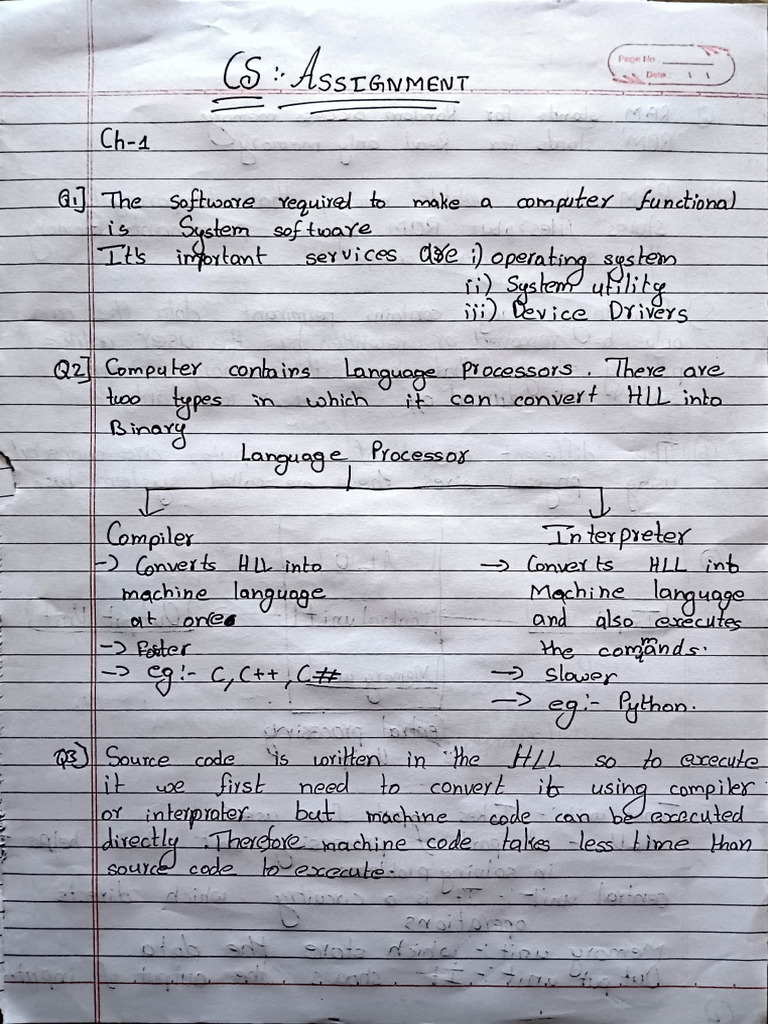 CS :- ASSIGNMENT
Page No
Date :
Ch-1
Q1] The software required to make a computer functional
is System software
It's important services are i) operating system
ii) System utility
iii) Device Drivers
Q2] Computer contains Language Processors. There are
two types in which it can convert HLL into
Binary
Language Processor
Compiler
Interpreter
-> Converts HLL into
machine language
at once
-> Faster
-> eg:- C, C++, C#
-> Converts HLL into
Machine language
and also executes
the commands.
-> Slower
-> eg:- Python.
Q3] Source code is written in the HLL so to execute
it we first need to convert it using compiler
or interprater but machine code can be executed
directly. Therefore machine code takes less time than
source code to execute.